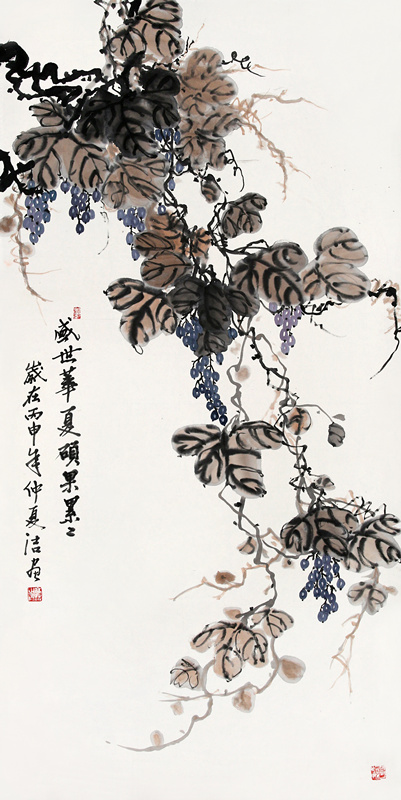 盛世華夏碩果累〻
歲在丙申年仲夏洁畫